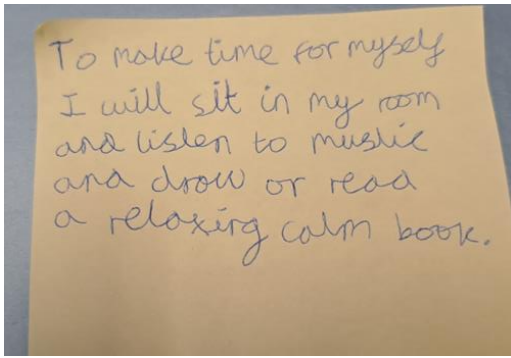 To make time for myself
I will sit in my room
and listen to muslic
and drow or read
a relaxing calm book.